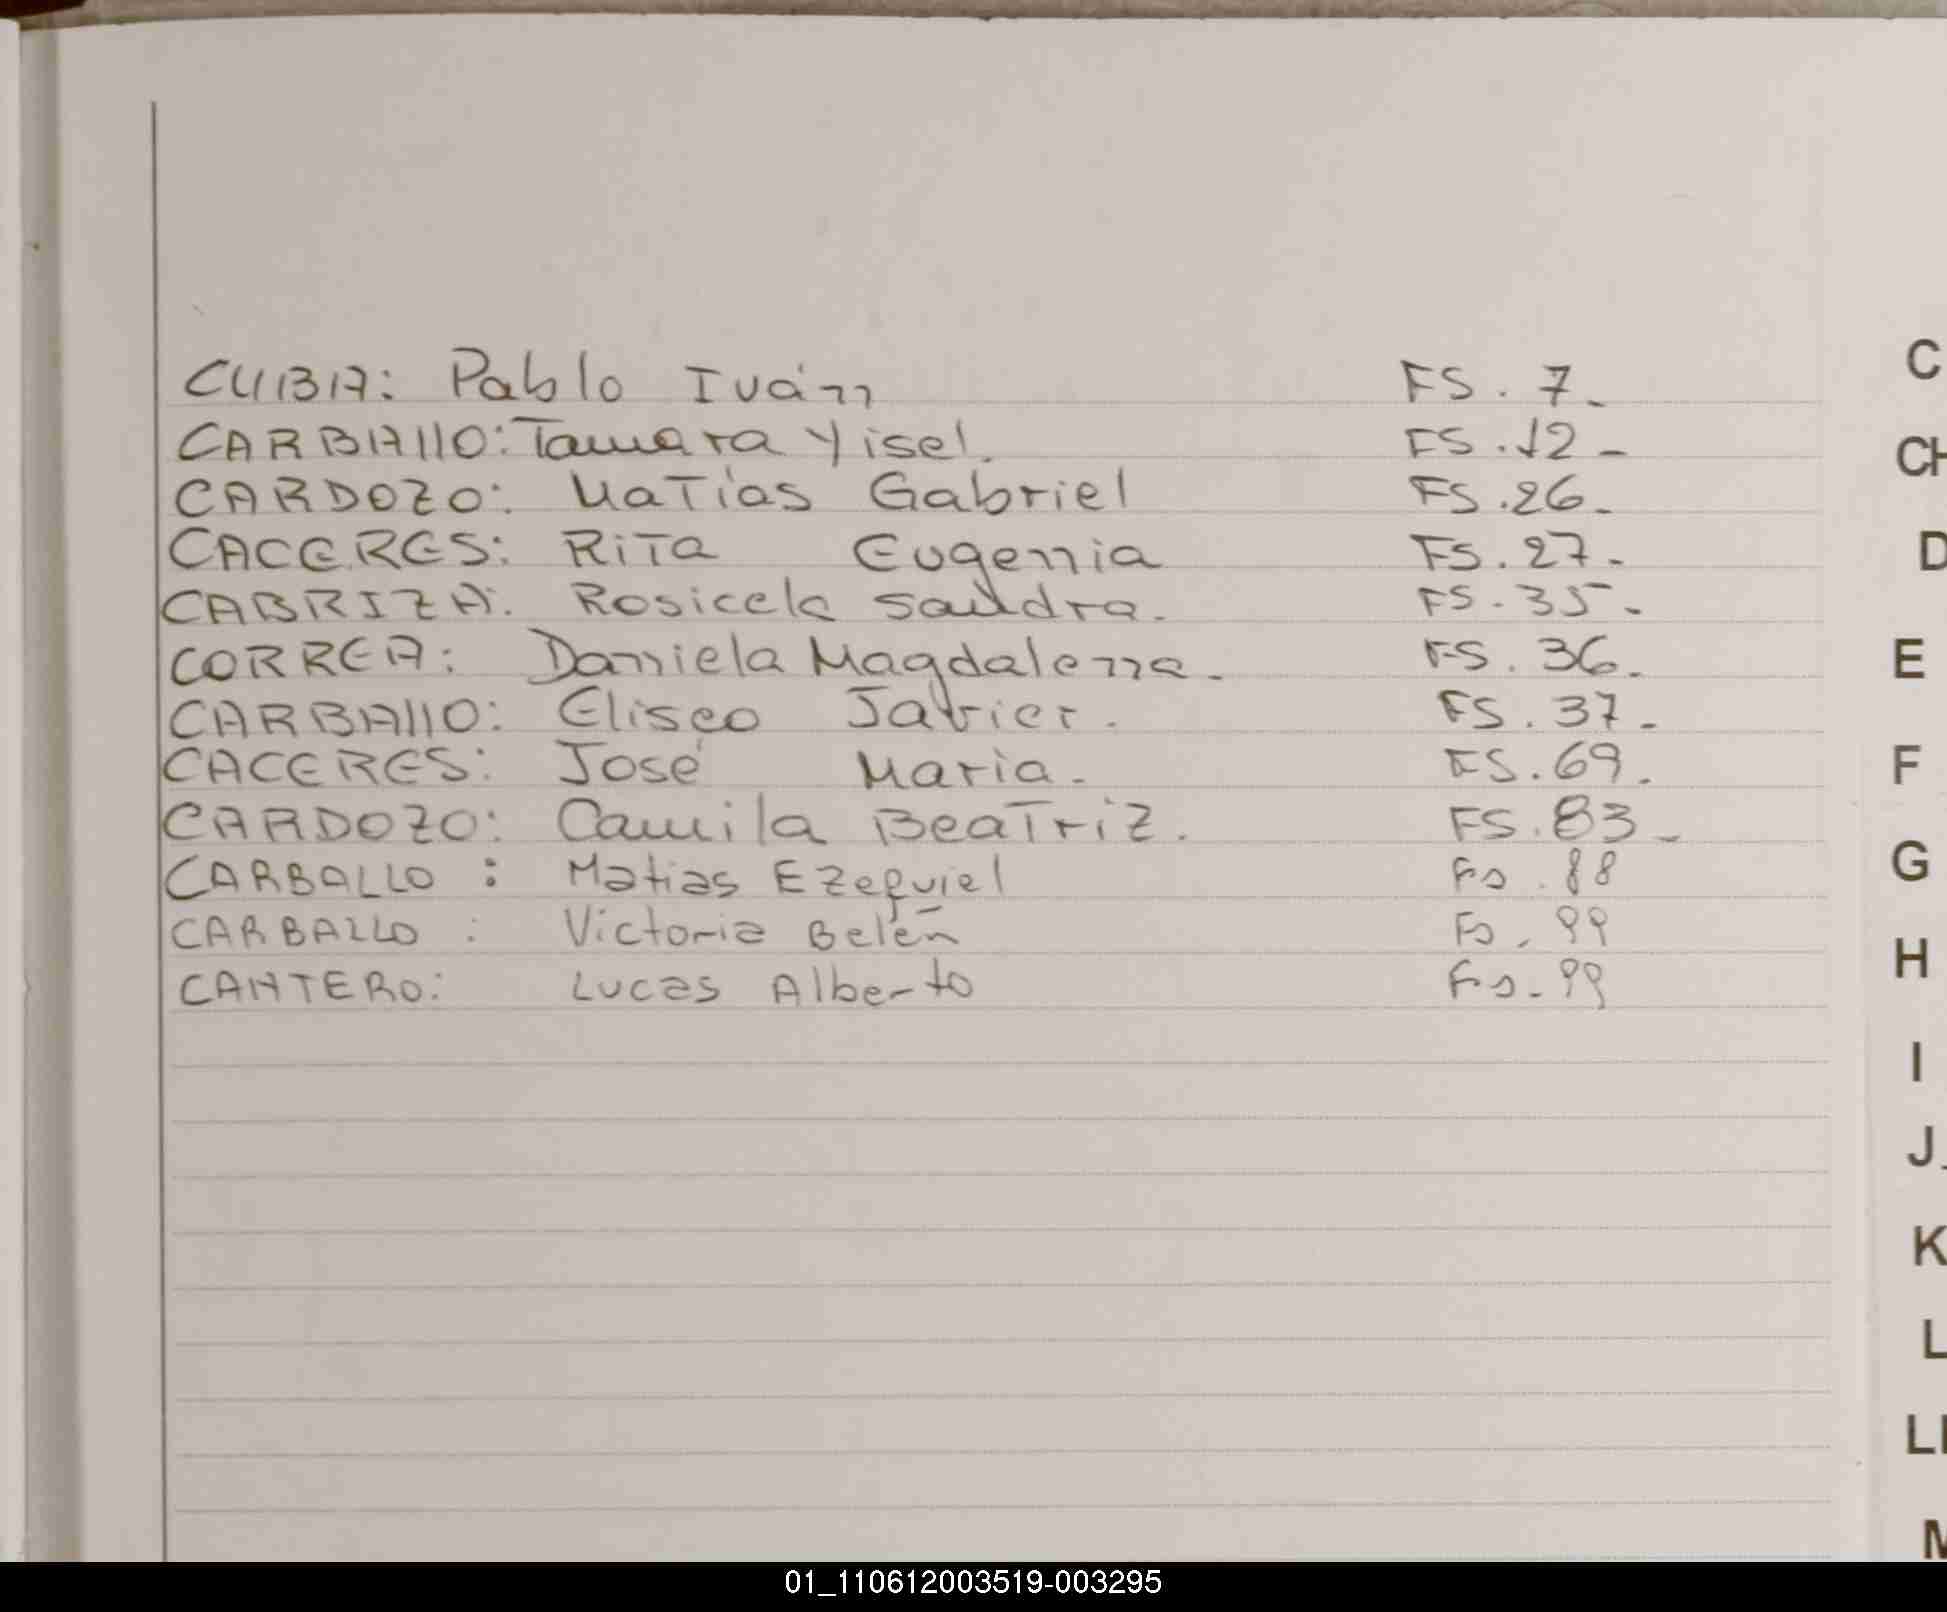 CUBA: Pablo Iván FS. 7-
CARBAllO: Tamara Yisel. FS. 12-
CARDOZO: Matías Gabriel FS. 26-
CACERES: Rita Eugenia FS. 27-
CABRIZA: Rosicela Sandra. FS. 35-
CORREA: Daniela Magdalena. FS. 36.
CARBAllO: Eliseo Javier. FS. 37-
CACERES: José Maria. FS. 69.
CARDOZO: Camila Beatriz. FS. 83-
CARBALLO: Matias Ezequiel Fs. 88
CARBALLO: Victoria Belén Fs. 99
CANTERO: Lucas Alberto Fs. 99
C
CH
D
E
F
G
H
I
J
K
L
Ll
M
01_110612003519-003295